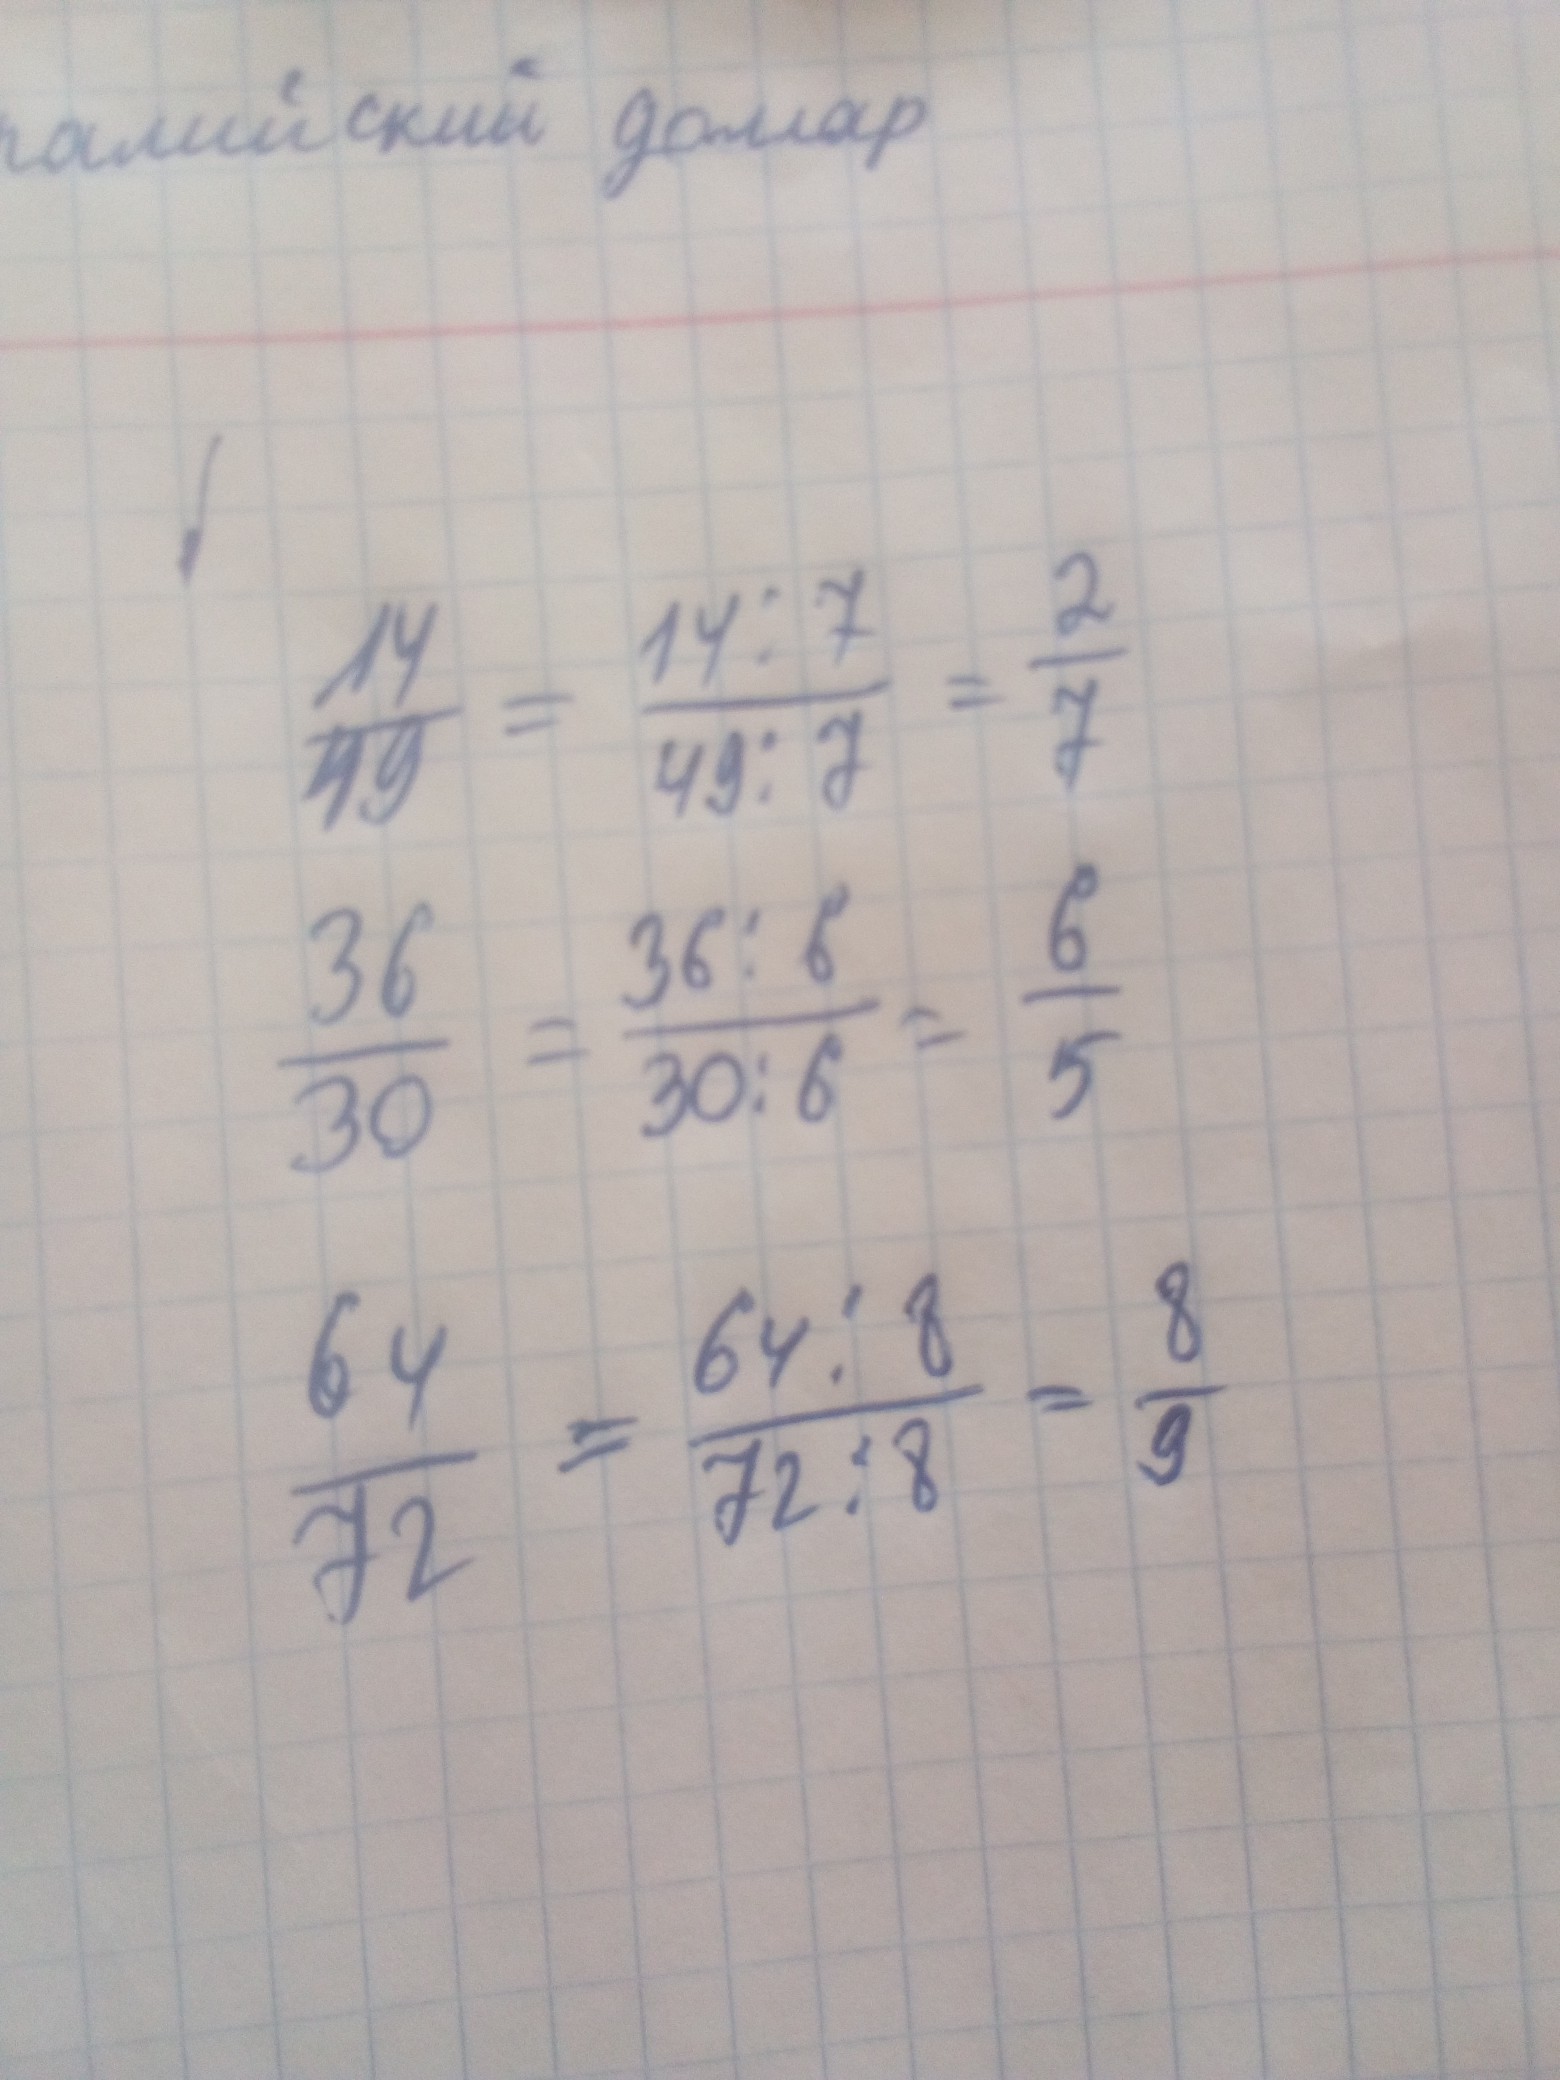 ралийский доллар
14/49 = 14:7/49:7 = 2/7
36/30 = 36:6/30:6 = 6/5
64/72 = 64:8/72:8 = 8/9